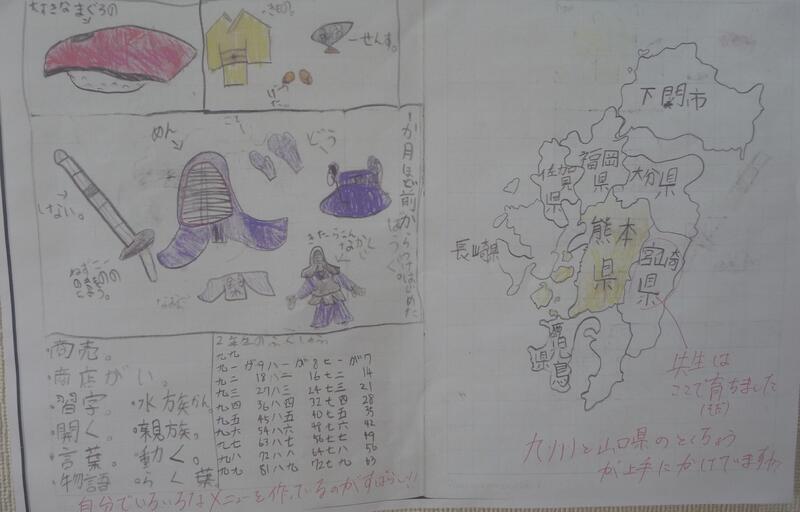 大すきなまぐろの
きもの。
せんす。
げた。
めん
こて
どう
しない。
1か月ほど前からやりはじめた
ぼうぐ。
きたらこん
なかんじ
商売。
商店がい。
習字。
水族かん。
開く。
親族。
言葉。
動く。
物語
らく葉。
九九
九一が9 八一が8 七一が7
九二18 八二16 七二14
九三27 八三24 七三21
九四36 八四32 七四28
九五45 八五40 七五35
九六54 八六48 七六42
九七63 八七56 七七49
九八72 八八64 七八56
九九81 八九72 七九63
自分でいろいろなメニューを作っているのがすばらしい!!
下関市
福岡県
佐賀県
大分県
長崎県
熊本県
宮崎県
鹿児島県
先生は
ここで育ちました
九州と山口県のとくちょう
が上手にかけていますね